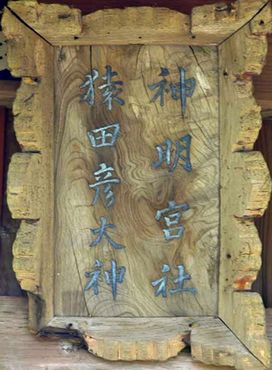 神明宮社
猿田彦大神